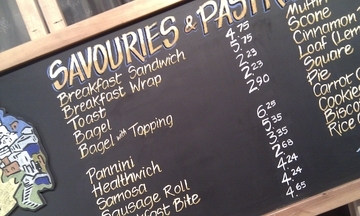 SAVOURIES & PASTR
Breakfast Sandwich 4.75
Breakfast Wrap 5.75
Toast 2.23
Bagel 2.23
Bagel with Topping 2.90
Pannini 6.25
Healthwich 5.35
Samosa 3.35
Sausage Roll 2.68
akfast Bite 4.24
4.24
4.65
Muffin
Scone
Cinnamon
Loaf (Lem
Square
Pie
Carrot C
Cookies
Bisco
Rice K